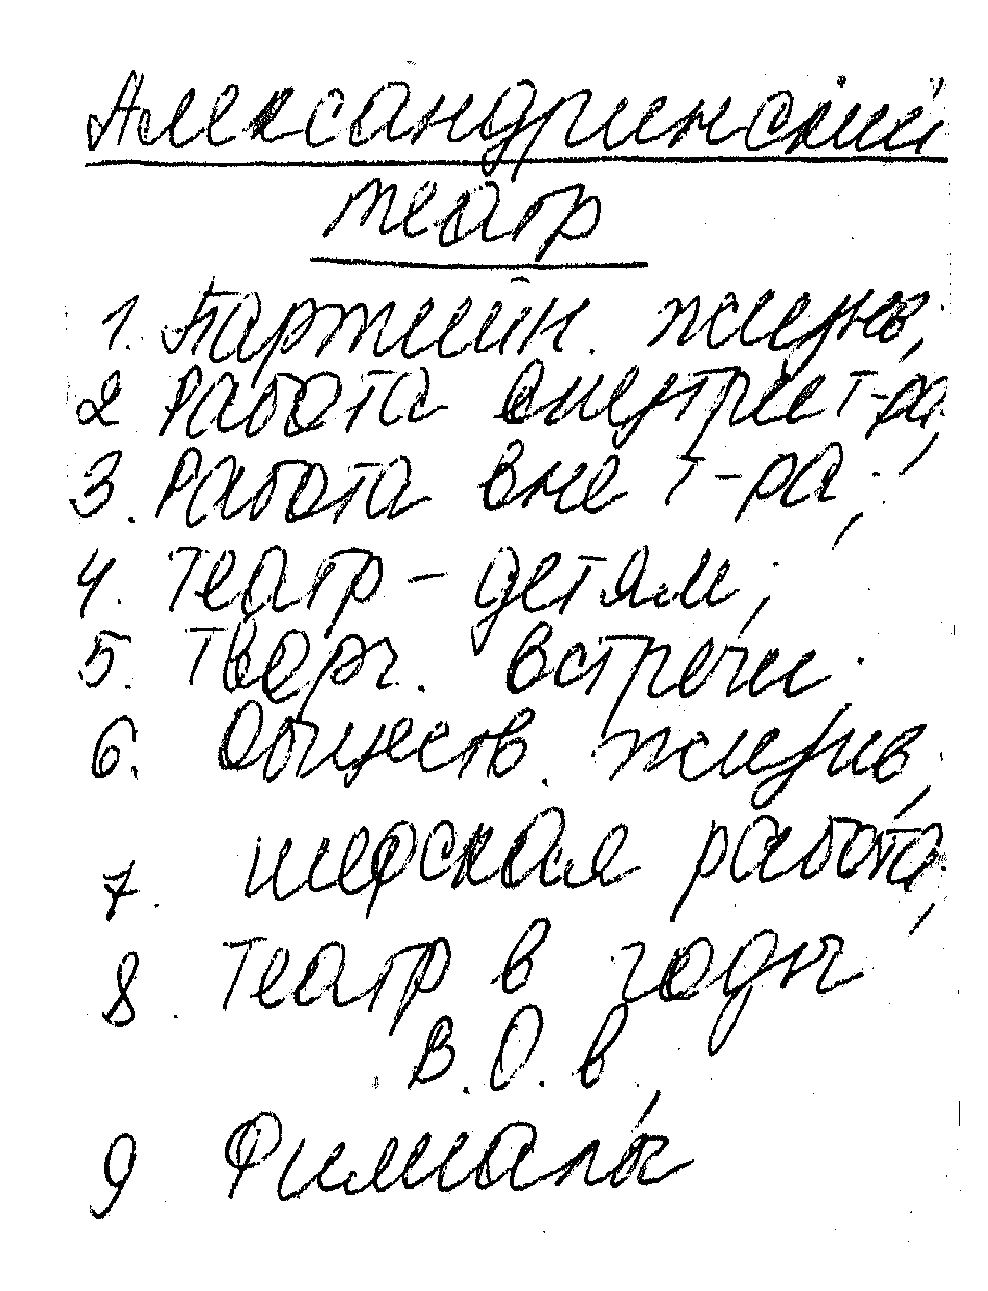 Александринский
театр
1. Партийн. жизнь,
2 Работа внутри т-ра,
3. Работа вне т-ра,
4. Театр - детям,
5. Творч. встречи.
6. Обществ. жизнь,
7. шефская работа,
8. Театр в годы
В.О.в,
9 Филиалы